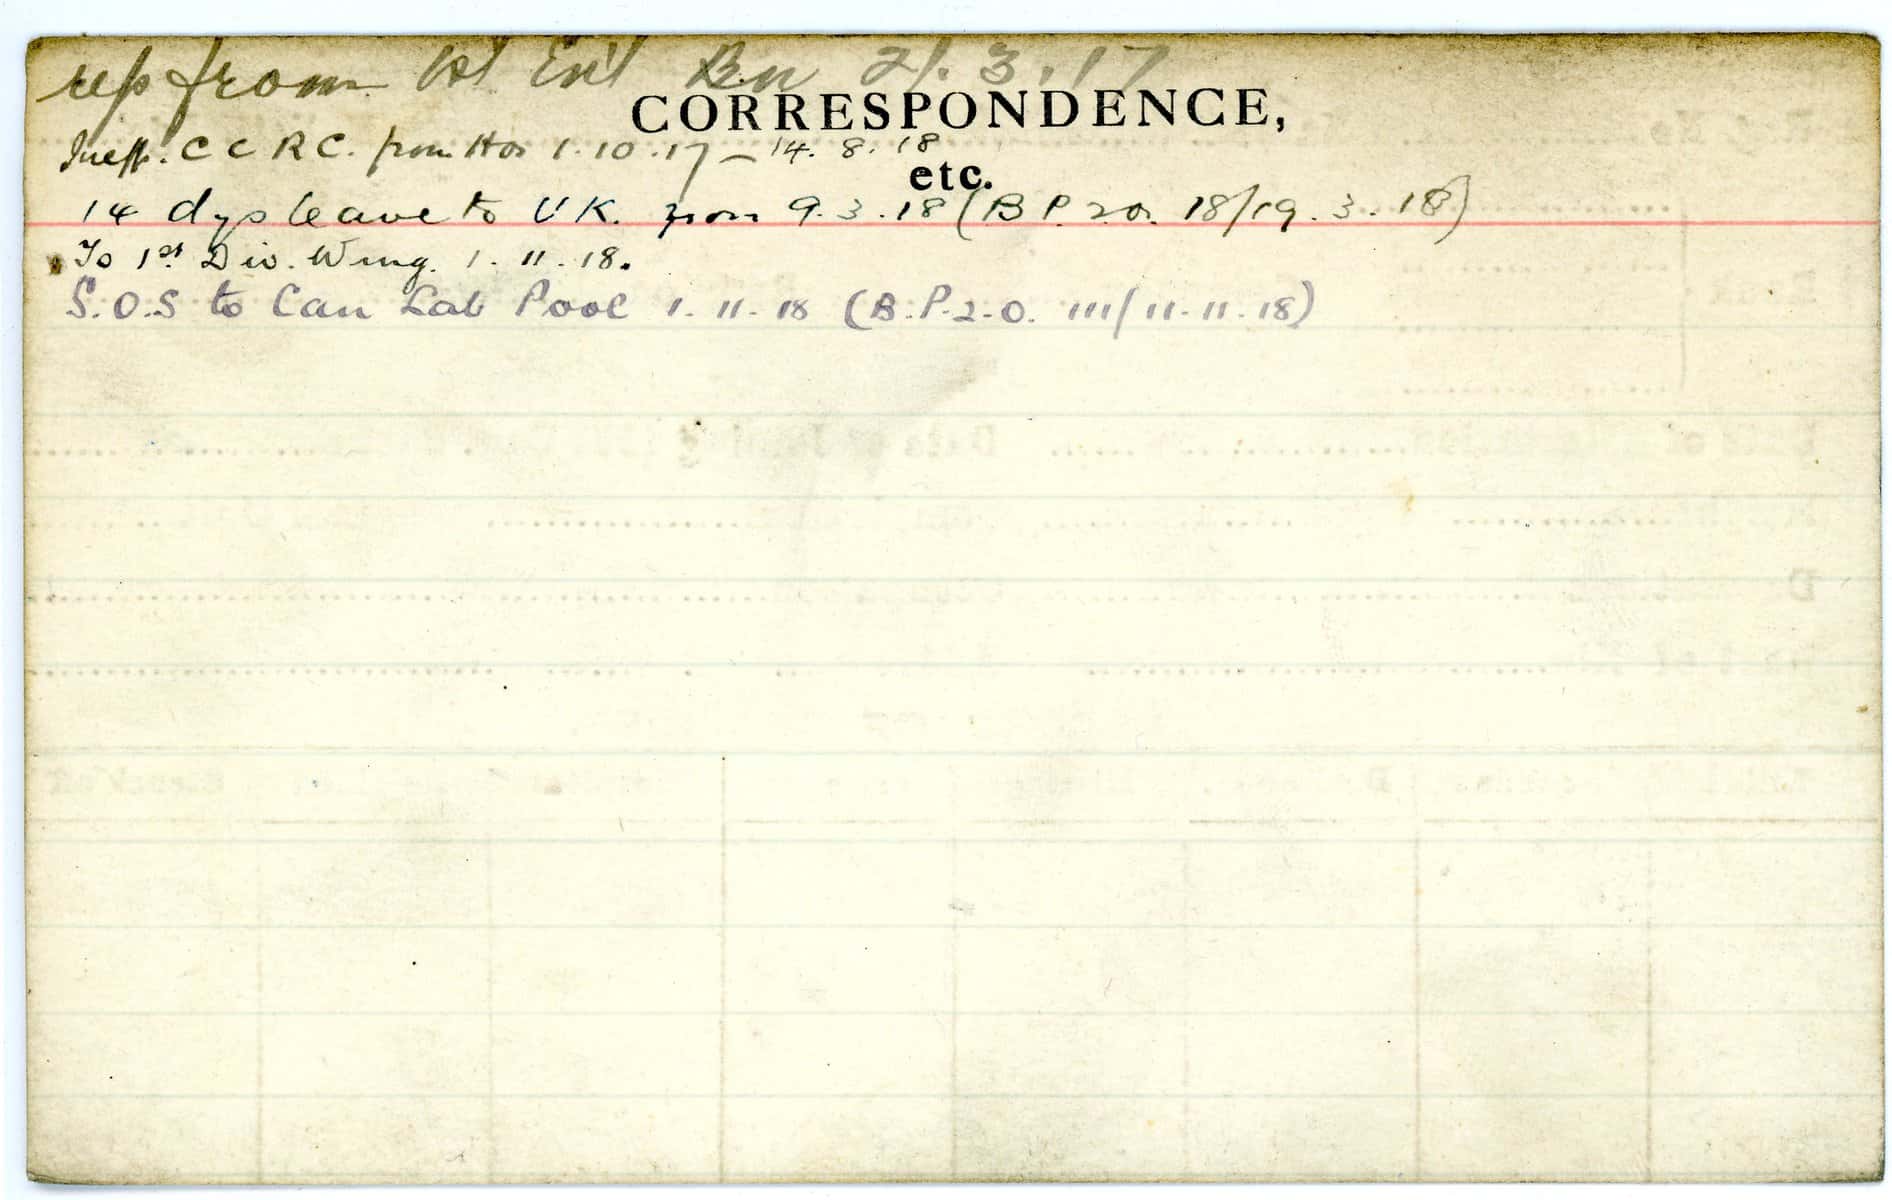 rep from 1st Ent Bn 21.3.17
CORRESPONDENCE,
Ineff. C C R C. from Hos 1.10.17 – 14.8.18
etc.
14 dys leave to U K. from 9.3.18 (B P. 2 o. 18/19.3.18)
To 1st Div. Wing. 1.11.18.
S.O.S to Can Lab Pool 1.11.18 (B.P.2.O. 111/11.11.18)